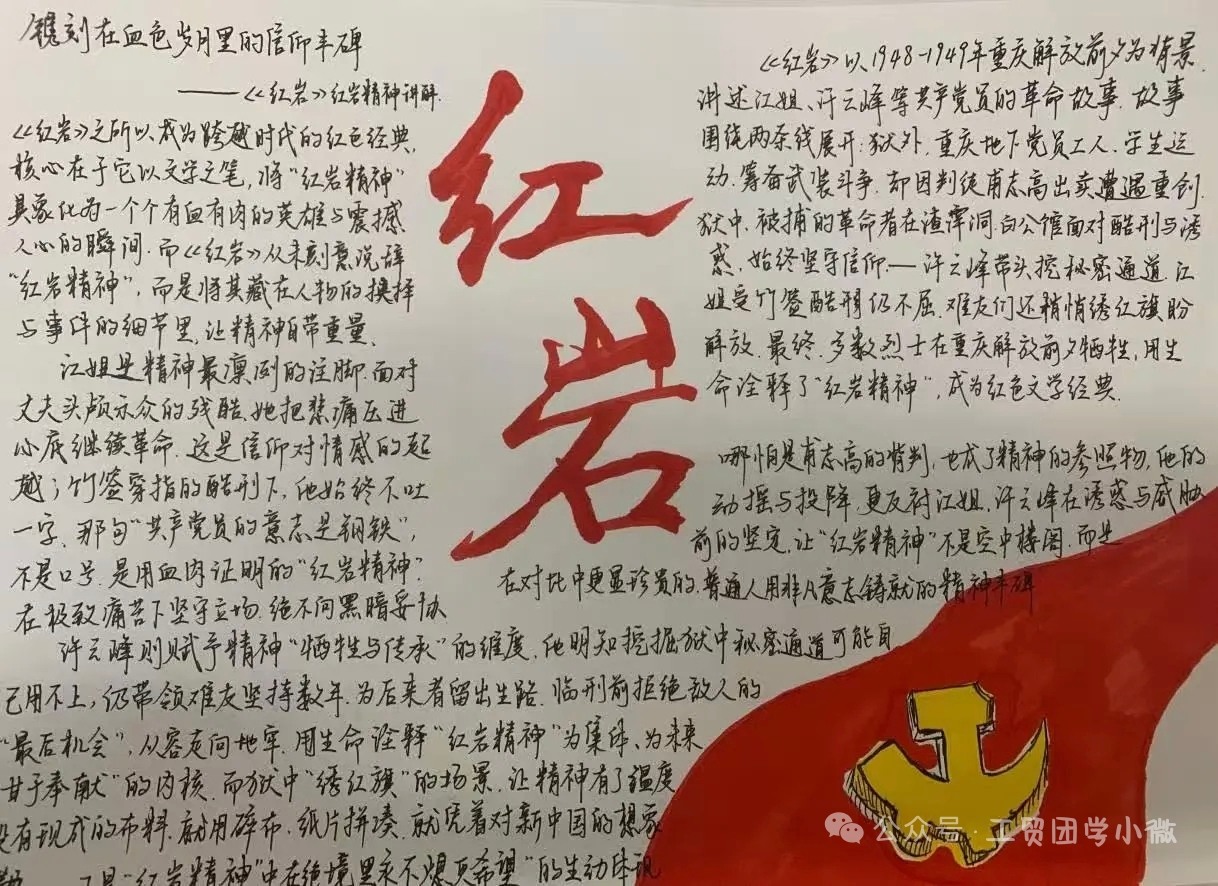 镌刻在血色岁月里的信仰丰碑
——《红岩》红岩精神讲解.
《红岩》之所以成为跨越时代的红色经典,
核心在于它以文学之笔,将“红岩精神”
具象化为一个个有血有肉的英雄与震撼
人心的瞬间.而《红岩》从未刻意说辞
“红岩精神”,而是将其藏在人物的抉择
与事件的细节里,让精神自带重量、
江姐是精神最凛冽的注脚.面对
丈夫头颅示众的残酷,她把悲痛压进
心底继续革命.这是信仰对情感的起
越;竹签穿指的酷刑下,他始终不吐
一字、那句“共产党员的意志是钢铁”,
不是口号.是用血肉证明的“红岩精神”.
在极致痛苦下坚守立场.绝不向黑暗妥协
许云峰则赋予精神“牺牲与传承”的维度.他明知挖掘狱中秘密通道可能自
己用不上,仍带领难友坚持数年.为后来者留出生路.临刑前拒绝敌人的
“最后机会”,从容走向地牢.用生命诠释“红岩精神”为集体、为未来
甘于奉献”的内核.而狱中“绣红旗”的场景,让精神有了温度
没有现成的布料.就用碎布.纸片拼凑.就凭着对新中国的想象
是“红岩精神”中在绝境里永不熄灭希望”的生动体现
红岩
《红岩》以1948-1949年重庆解放前夕为背景.
讲述江姐、许云峰等共产党员的革命故事.故事
围绕两条线展开:狱外,重庆地下党员工人.学生运
动.筹备武装斗争.却因判徒甫志高出卖遭遇重创.
狱中.被捕的革命者在渣滓洞.白公馆面对酷刑与诱
惑.始终坚守信仰——许云峰带头挖秘密通道.江
姐受竹签酷刑仍不屈.难友们还悄悄绣红旗盼
解放.最终.多数烈士在重庆解放前夕牺牲,用生
命诠释了“红岩精神”,成为红色文学经典.
哪怕是甫志高的背判,也成了精神的参照物,他的
动摇与投降.更反衬江姐.许云峰在诱惑与威胁
前的坚定.让“红岩精神”不是空中楼阁.而是
在对比中更显珍贵的.普通人用非凡意志铸就的精神丰碑
公众号·工贸团学小微